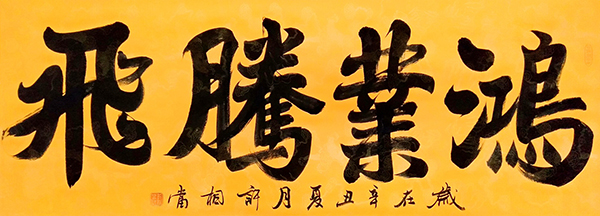 鴻業騰飛
歲在辛丑夏月許相當